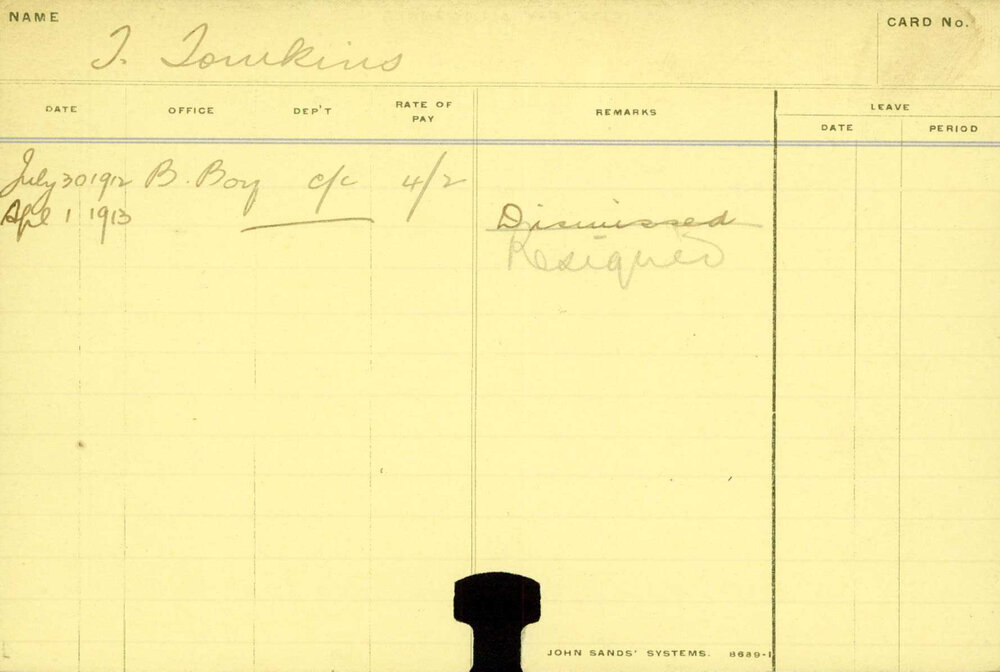 NAME
CARD No.
T. Tomkins
DATE OFFICE DEP'T RATE OF PAY REMARKS LEAVE
DATE PERIOD
July 30 1912 B. Boy c/c 4/2
Apl 1 1913 Dismissed
Resigned
JOHN SANDS' SYSTEMS. 8689-1